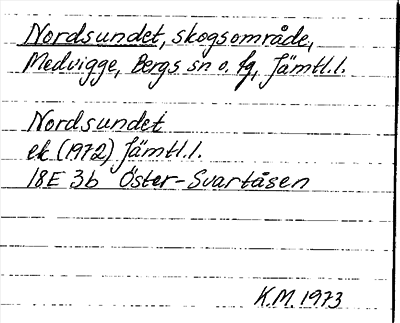 Nordsundet, skogsområde,
Medvigge, Bergs sn o. fg, Jämtl.l.
Nordsundet
ek (1972) Jämtl.l.
18E 3b Öster-Svartåsen
K.M. 1973